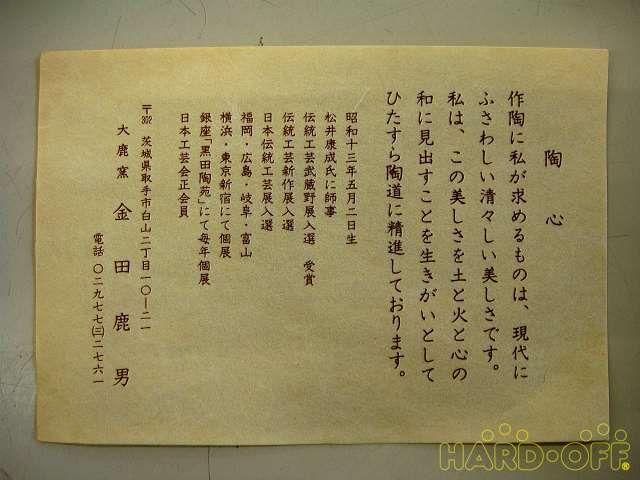 陶心
作陶に私が求めるものは、現代に
ふさわしい清々しい美しさです。
私は、この美しさを土と火と心の
和に見出すことを生きがいとして
ひたすら陶道に精進しております。
昭和十三年五月二日生
松井康成氏に師事
伝統工芸武蔵野展入選 受賞
伝統工芸新作展入選
日本伝統工芸展入選
福岡・広島・岐阜・富山
横浜・東京新宿にて個展
銀座「黒田陶苑」にて毎年個展
日本工芸会正会員
〒302 茨城県取手市白山二丁目一〇ー二一
大鹿窯 金田鹿男
電話 〇二九七七(三)二七六一
HARD-OFF